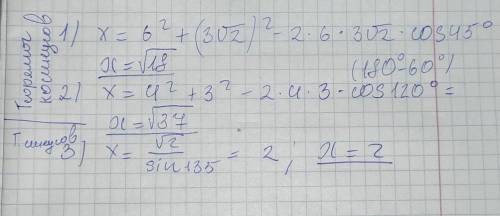 Теоремы косинусов
1) x = 6² + (3√2)² - 2·6·3√2·cos45°
x = √18
(180°-60°)
2) x = 4² + 3² - 2·4·3·cos120° =
x = √37
Т. синусов
3) x = √2 / sin135 = 2; x = 2